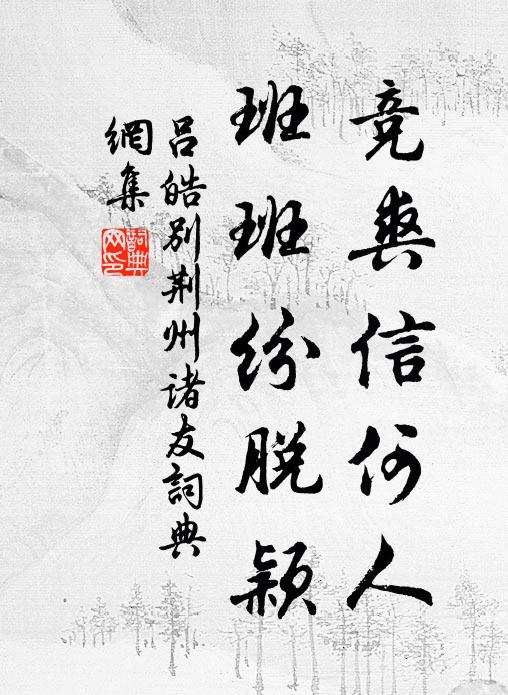 竞爽信何人
班班纷脱颖
吕皓别荆州诸友词典
網集
詞典
网印